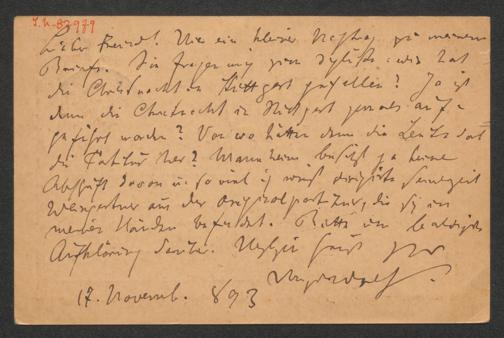 I.N. 82979
Lieber Freund! Nur ein kleiner Nachtrag zu meinem
Briefe. Sie fragen mich zum Schluße: wie hat
die Christnacht in Stuttgart gefallen? Ja ist
denn die Christnacht in Stuttgart jemals auf =
geführt worden? Von wo hätten denn die Leute dort
die Partitur her? Mannheim besitzt ja keine
Abschrift davon u. so viel ich weiß dirigirte seinerzeit
Weingartner aus der Originalpartitur, die sich in
meinen Händen befindet. Bitte um baldigste
Aufklärung darüber. Herzlich grüßt Ihr
Hugo Wolf.
17. November 893